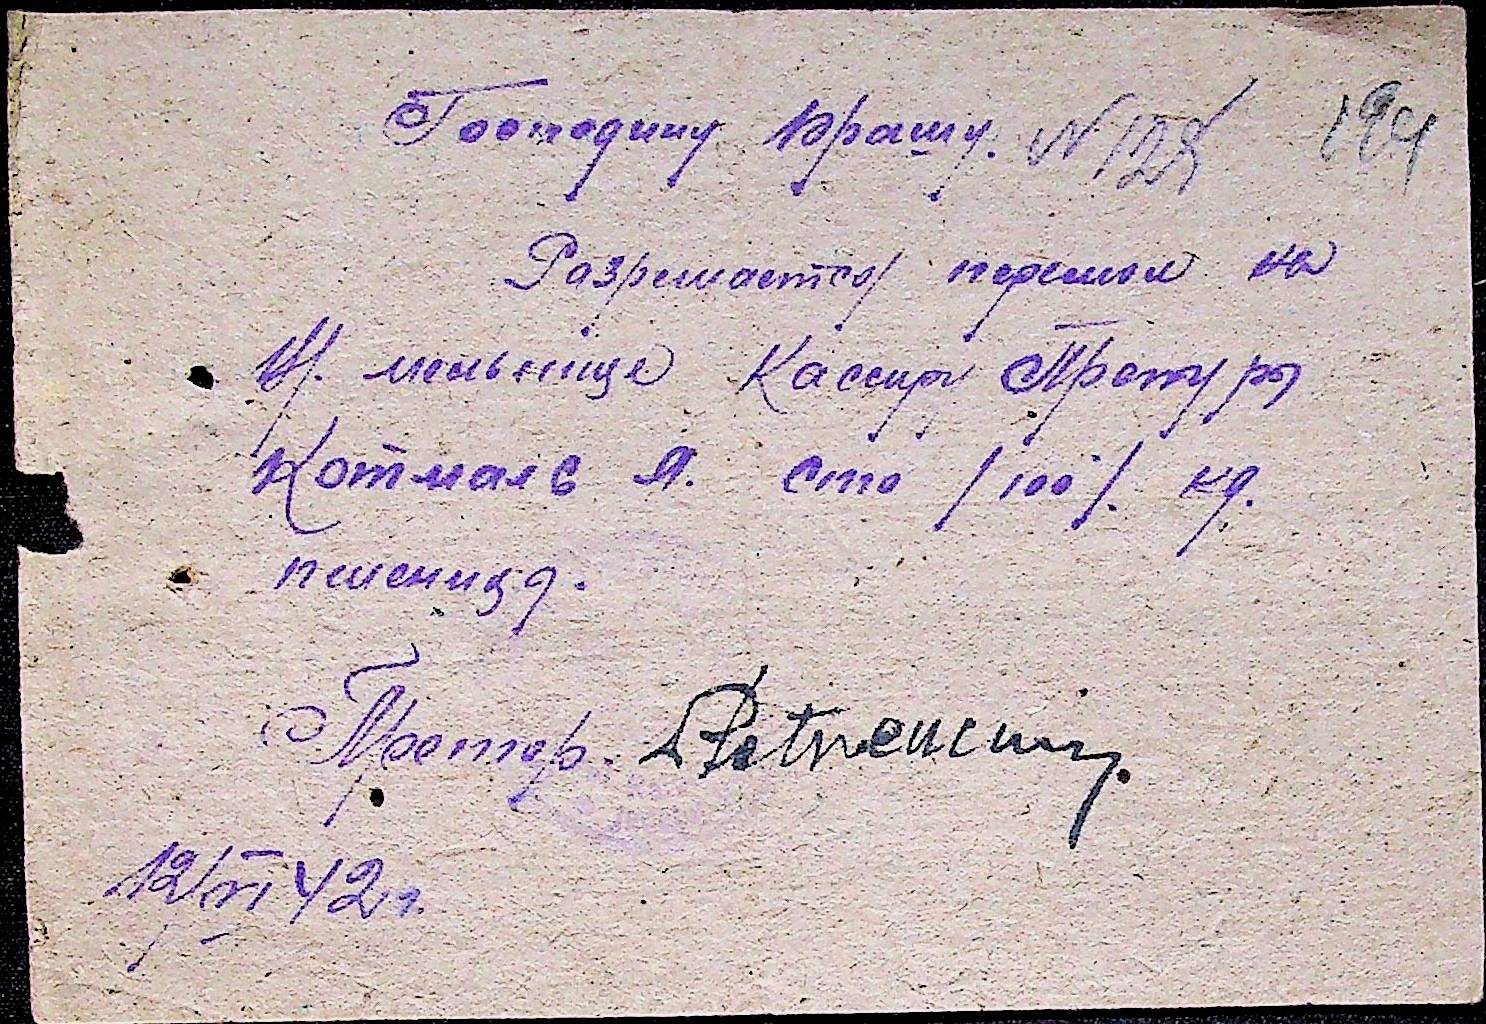 Господину Юрашу. N 128 194
Разрешается перемол на
мельнице Кассир Претуры
Котмаль Я. сто /100/. кг.
пшеница.
Претор.
12/VI 42 г.